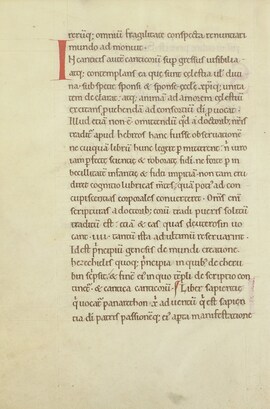 rerūq; omniū fragilitate conspecta renuntiari
mundo ad monuit.
IN canticis autē canticoꝝ sup gressus visibilia
atq; contemplans ea que sunt celestia ul' diui
na sub specie sponsi & sponse eccl'e xp̄iq; unita
tem declarat. atq; animā ad amorem celestiū
excitans puehenda ad consortiū dī puocat.
Illud etiā non ē omittendū qd a doctorib; nr̄is
traditū apud hebreos hanc fuisse observationē
ne cuiquā librū hunc legere pmitterent n̄ viro
iam pfecte scientie & roborate fidi. ne forte p im
becillitatē infantie & fidi impitiā non tam eru
diret cognitio lubricas mentes, quā potiꝰ ad con
cupiscentias corporales converteret. Om̄s eni
scripturas a doctorib; eoꝝ tradi pueris solitū
traditū est: &
cant. IIII. tantū ista ad ultimū reservarint.
Id est principiū genesis de mundi creatione.
hezechieles quoq; principia in quib; de cheru
bin scpsit. & finē eiꝰ in quo tēpli descriptio con
tinet. & cantica canticoꝝ. Liber sapientie
quocat panarethon & adventū qd est sapien
tia dī patris passionēq; eiꝰ apta manifestatione